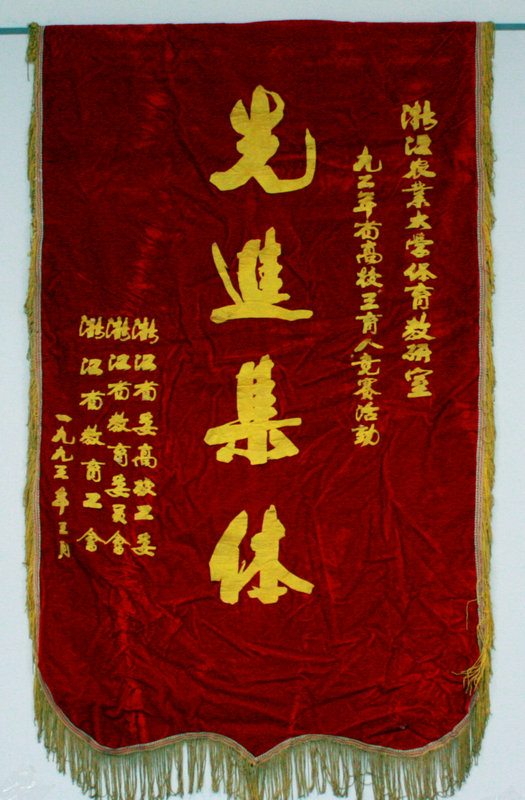 浙江农業大学体育教研室
九二年省高校三育人竞赛活動
先進集体
浙江省委高校工委
浙江省教育委员會
浙江省教育工會
一九九三年三月